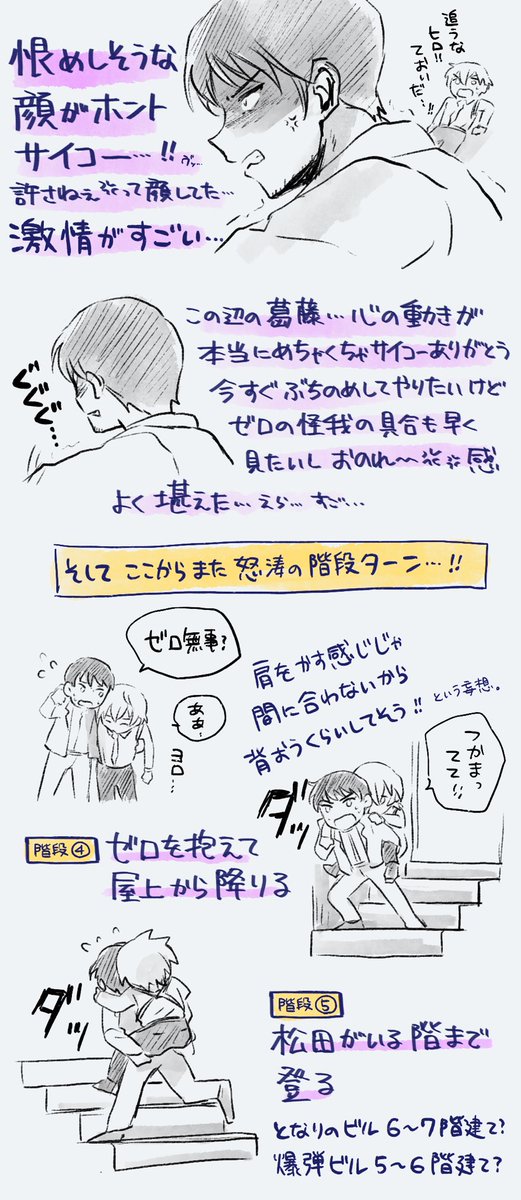 恨めしそうな
顔がホント
サイコー…!!
許さねぇって顔してた…
激情がすごい…
追うな
ヒロ!!
ておいだ…!!
この辺の葛藤…心の動きが
本当にめちゃくちゃサイコーありがとう
今すぐぶちのめしてやりたいけど
ゼロの怪我の具合も早く
見たいし おのれ〜感
よく堪えた…えら…すご…
ぐぐぐ…
そして ここからまた 怒涛の階段ターン…!!
ゼロ無事?
ああ…
ヨロ…
肩をかす感じじゃ
間に合わないから
背おうくらいしてそう!! という妄想。
つかまっ
てて!!
ダッ
階段④
ゼロを抱えて
屋上から降りる
ダッ
階段⑤
松田がいる階まで
登る
となりのビル 6〜7階建て?
爆弾ビル 5〜6階建て?